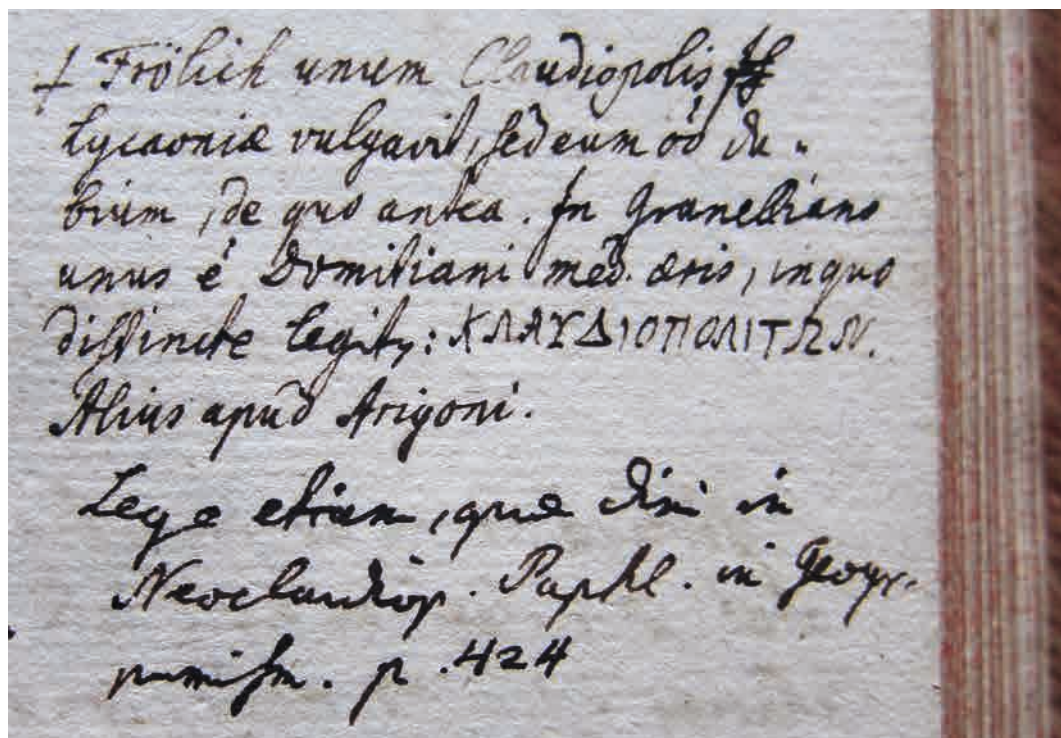 + Frölich unum Claudiopolis
Lycaoniæ vulgavit, sed eum ob du-
bium, de quo antea. In Granelliano
unus é Domitiani med. æris, in quo
distincte legitur: ΚΛΑΥΔΙΟΠΟΛΙΤΩΝ.
Alius apud Arigoni.
Lege etiam, quæ dixi in
Neoclaudiop. Paphl. in Geogr.
numism. p. 424